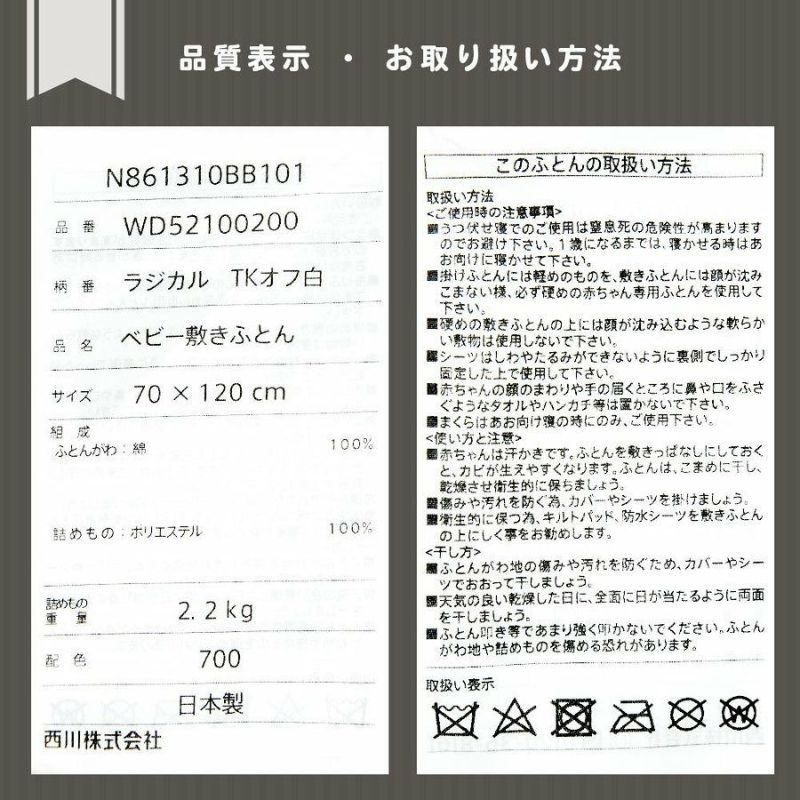 品質表示 ・ お取り扱い方法
N861310BB101
品番 WD52100200
柄番 ラジカル TKオフ白
品名 ベビー敷きふとん
サイズ 70 × 120 cm
組成
ふとんがわ：綿 100%
詰めもの：ポリエステル 100%
詰めもの
重量 2.2kg
配色 700
日本製
西川株式会社
このふとんの取扱い方法
取扱い方法
<ご使用時の注意事項>
■うつ伏せ寝でのご使用は窒息死の危険性が高まります
のでお避け下さい。1歳になるまでは、寝かせる時はあ
お向けに寝かせて下さい。
■掛けふとんには軽めのものを、敷きふとんには顔が沈み
こまない様、必ず硬めの赤ちゃん専用ふとんを使用して
下さい。
■硬めの敷きふとんの上には顔が沈み込むような軟らか
い敷物は使用しないで下さい。
■シーツはしわやたるみができないように裏側でしっかり
固定した上で使用して下さい。
■赤ちゃんの顔のまわりや手の届くところに鼻や口をふさ
ぐようなタオルやハンカチ等は置かないで下さい。
■まくらはあお向け寝の時にのみ、ご使用下さい。
<使い方と注意>
■赤ちゃんは汗かきです。ふとんを敷きっぱなしにしておく
と、カビが生えやすくなります。ふとんは、こまめに干し、
乾燥させ衛生的に保ちましょう。
■傷みや汚れを防ぐ為、カバーやシーツを掛けましょう。
■衛生的に保つ為、キルトパッド、防水シーツを敷きふとん
の上にしく事をお勧めします。
<干し方>
■ふとんがわ地の傷みや汚れを防ぐため、カバーやシー
ツでおおって干しましょう。
■天気の良い乾燥した日に、全面に日が当たるように両面
を干しましょう。
■ふとん叩き等であまり強く叩かないでください。ふとん
がわ地や詰めものを傷める恐れがあります。
取扱い表示